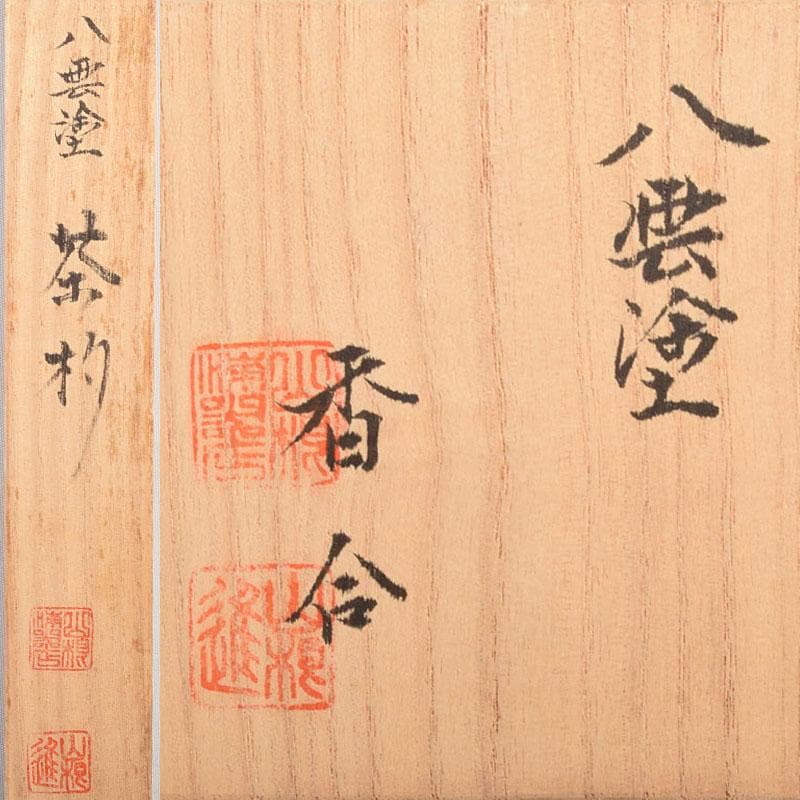 八雲塗
茶杓
八雲塗
香合